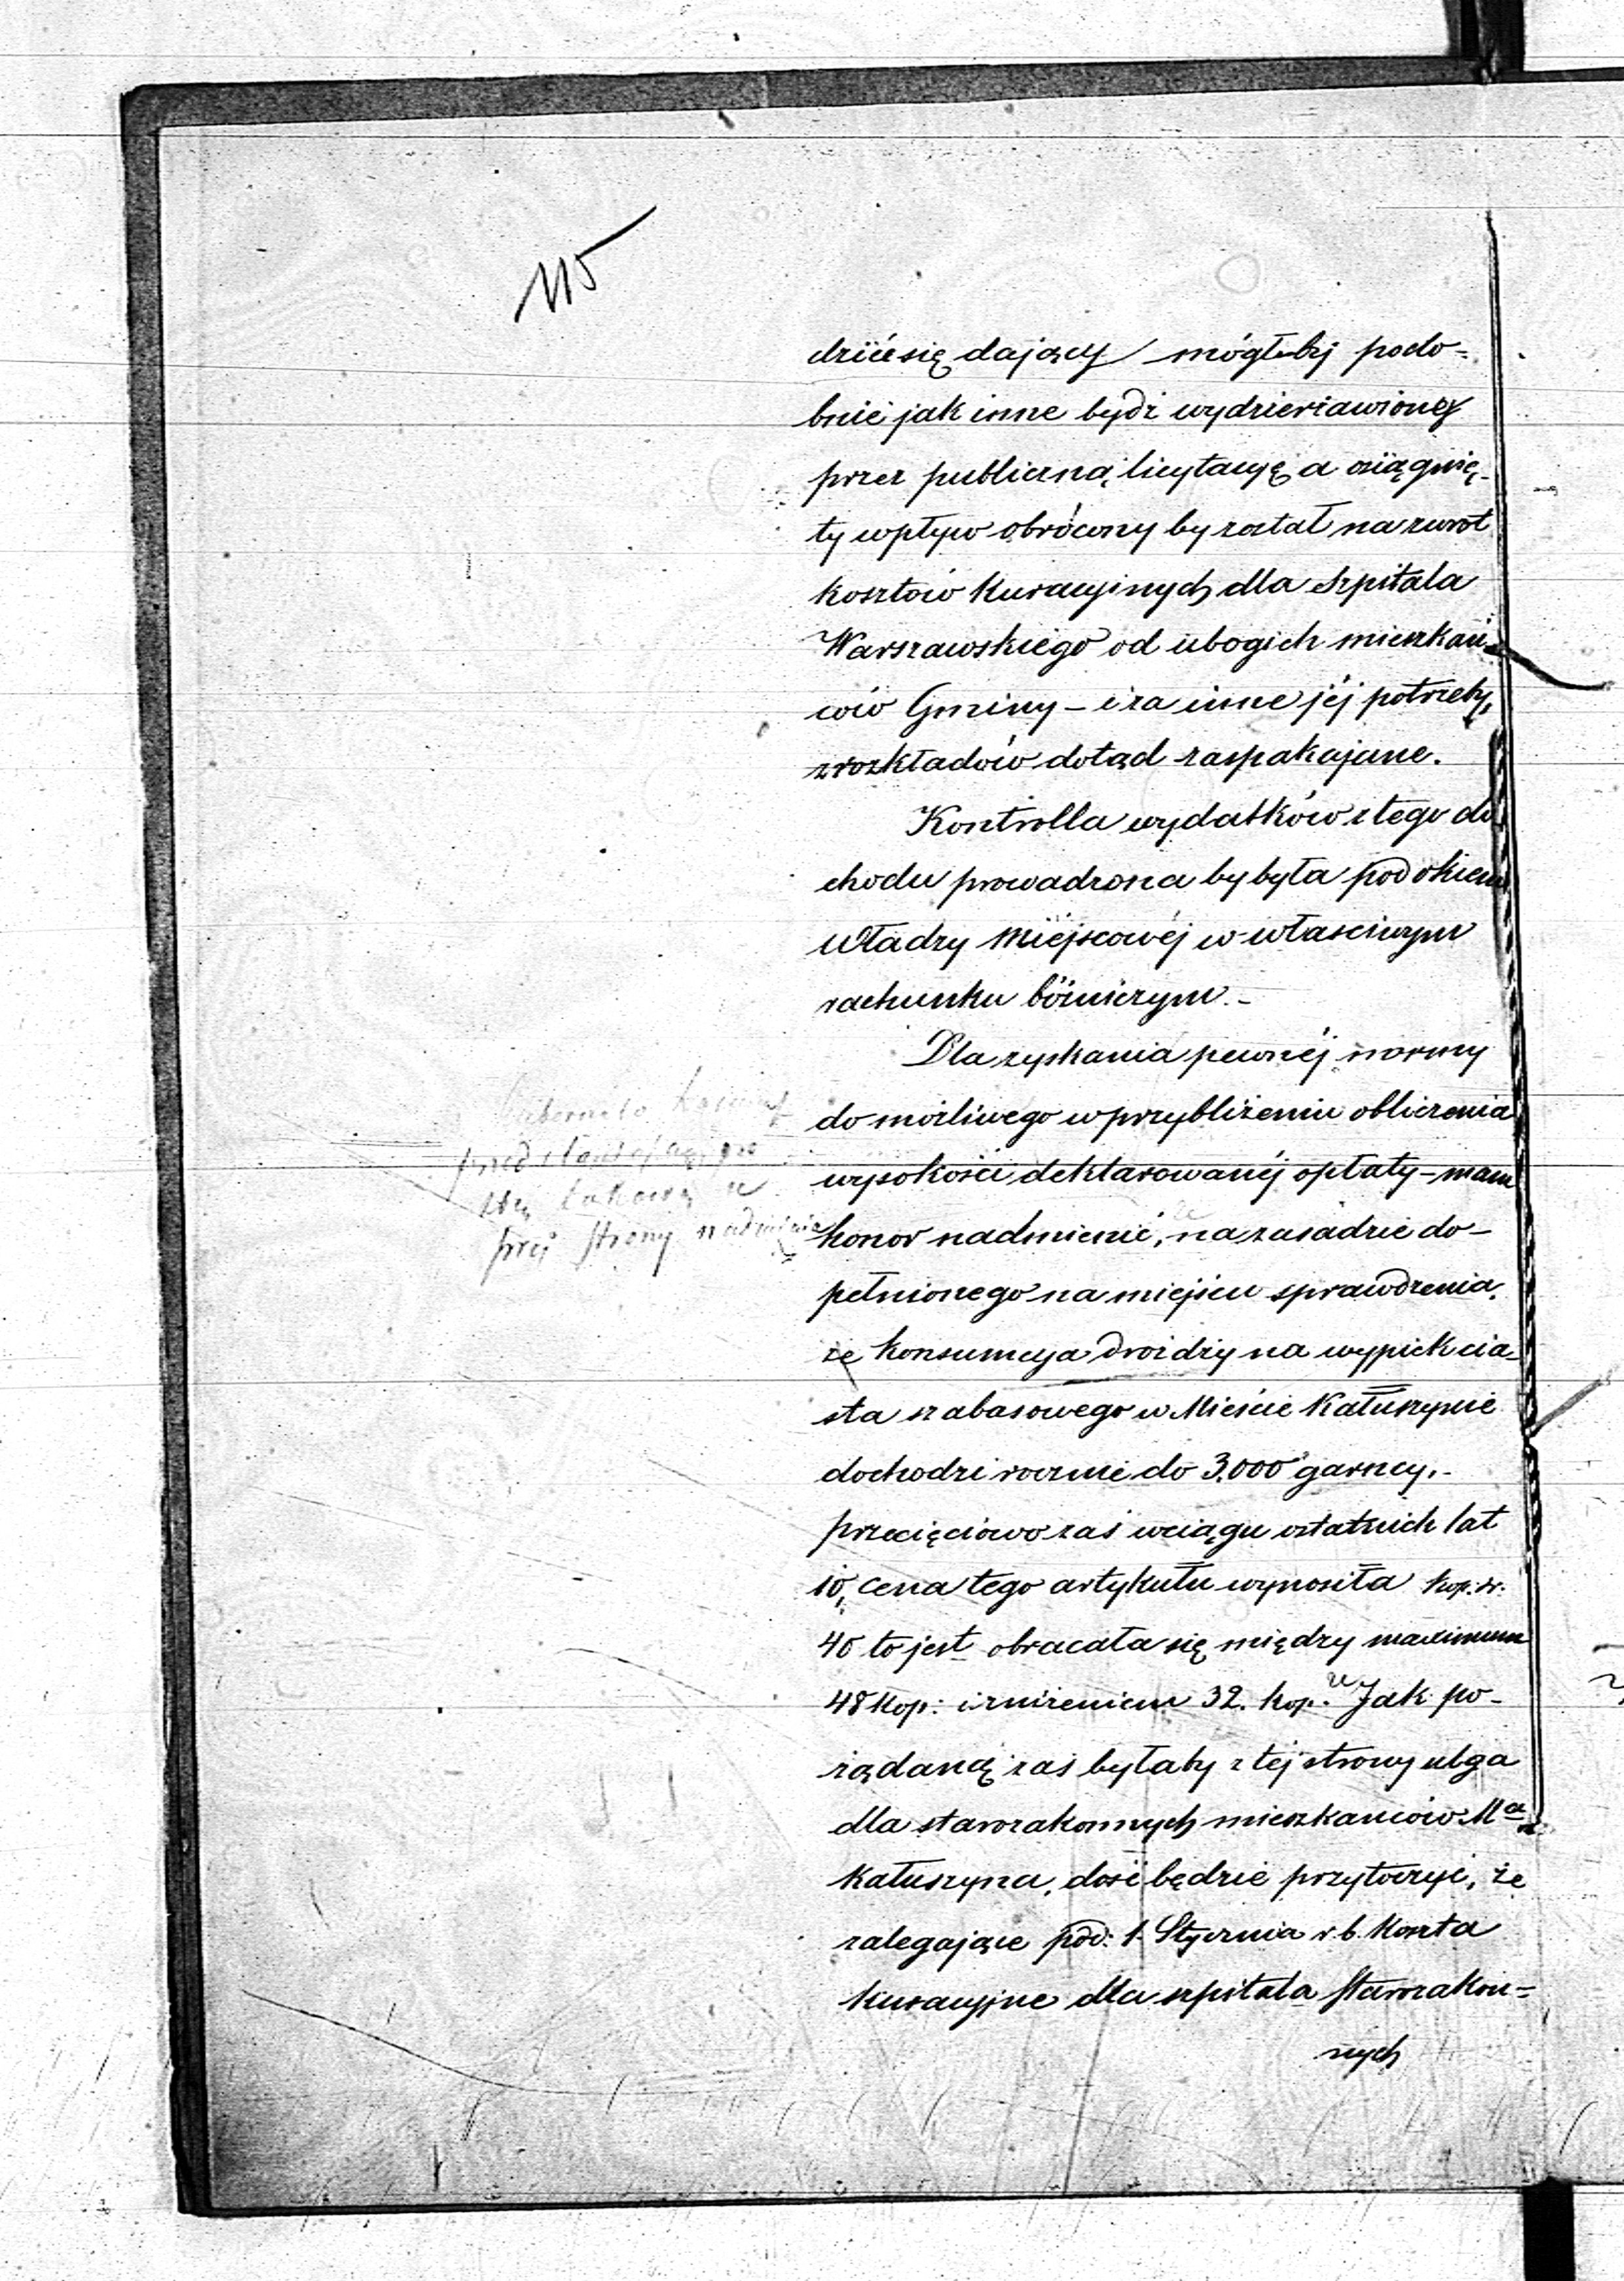 115
dzić się dający mógłby podo=
bnie jak inne bydź wydzierżawiony
przez publiczną licytacyę a osiągnię-
ty wpływ obrócony by został na zwrot
kosztów kuracyinych dla Szpitala
Warszawskiego od ubogich mieszkań-
ców Gminy – i za inne jéj potrzeby,
z rozkładów dotąd zaspakajane.
Kontrolla wydatków z tego do
chodu prowadzona by była pod okiem
władzy Miéjscowéj w właściwym
rachunku bóżniczym. –
Dla zyskania pewnéj normy
do możliwego w przybliżeniu obliczenia
wysokości deklarowanéj opłaty – mam
honor nadmienić, na zasadzie do-
pełnionego na miejscu sprawdzenia,
że konsumcya drożdży na wypiek cia-
sta szabasowego w Mieście Kałuszynie
dochodzi rocznie do 3.000 garncy. –
przecięciowo zaś w ciągu ostatnich lat
10, cena tego artykułu wynosiła kop. sr.
40 to jest obracała się między maximum
48 kop: i zniżeniem 32. kop. Jak po-
żądaną zaś byłaby z téj strony ulga
dla starozakonnych mieszkańców Ma
Kałuszyna, dość będzie przytoczyć, że
zalegające pod: 1 Stycznia r. b. koszta
kuracyjne dla szpitala Starozakon=
nych
przez strony